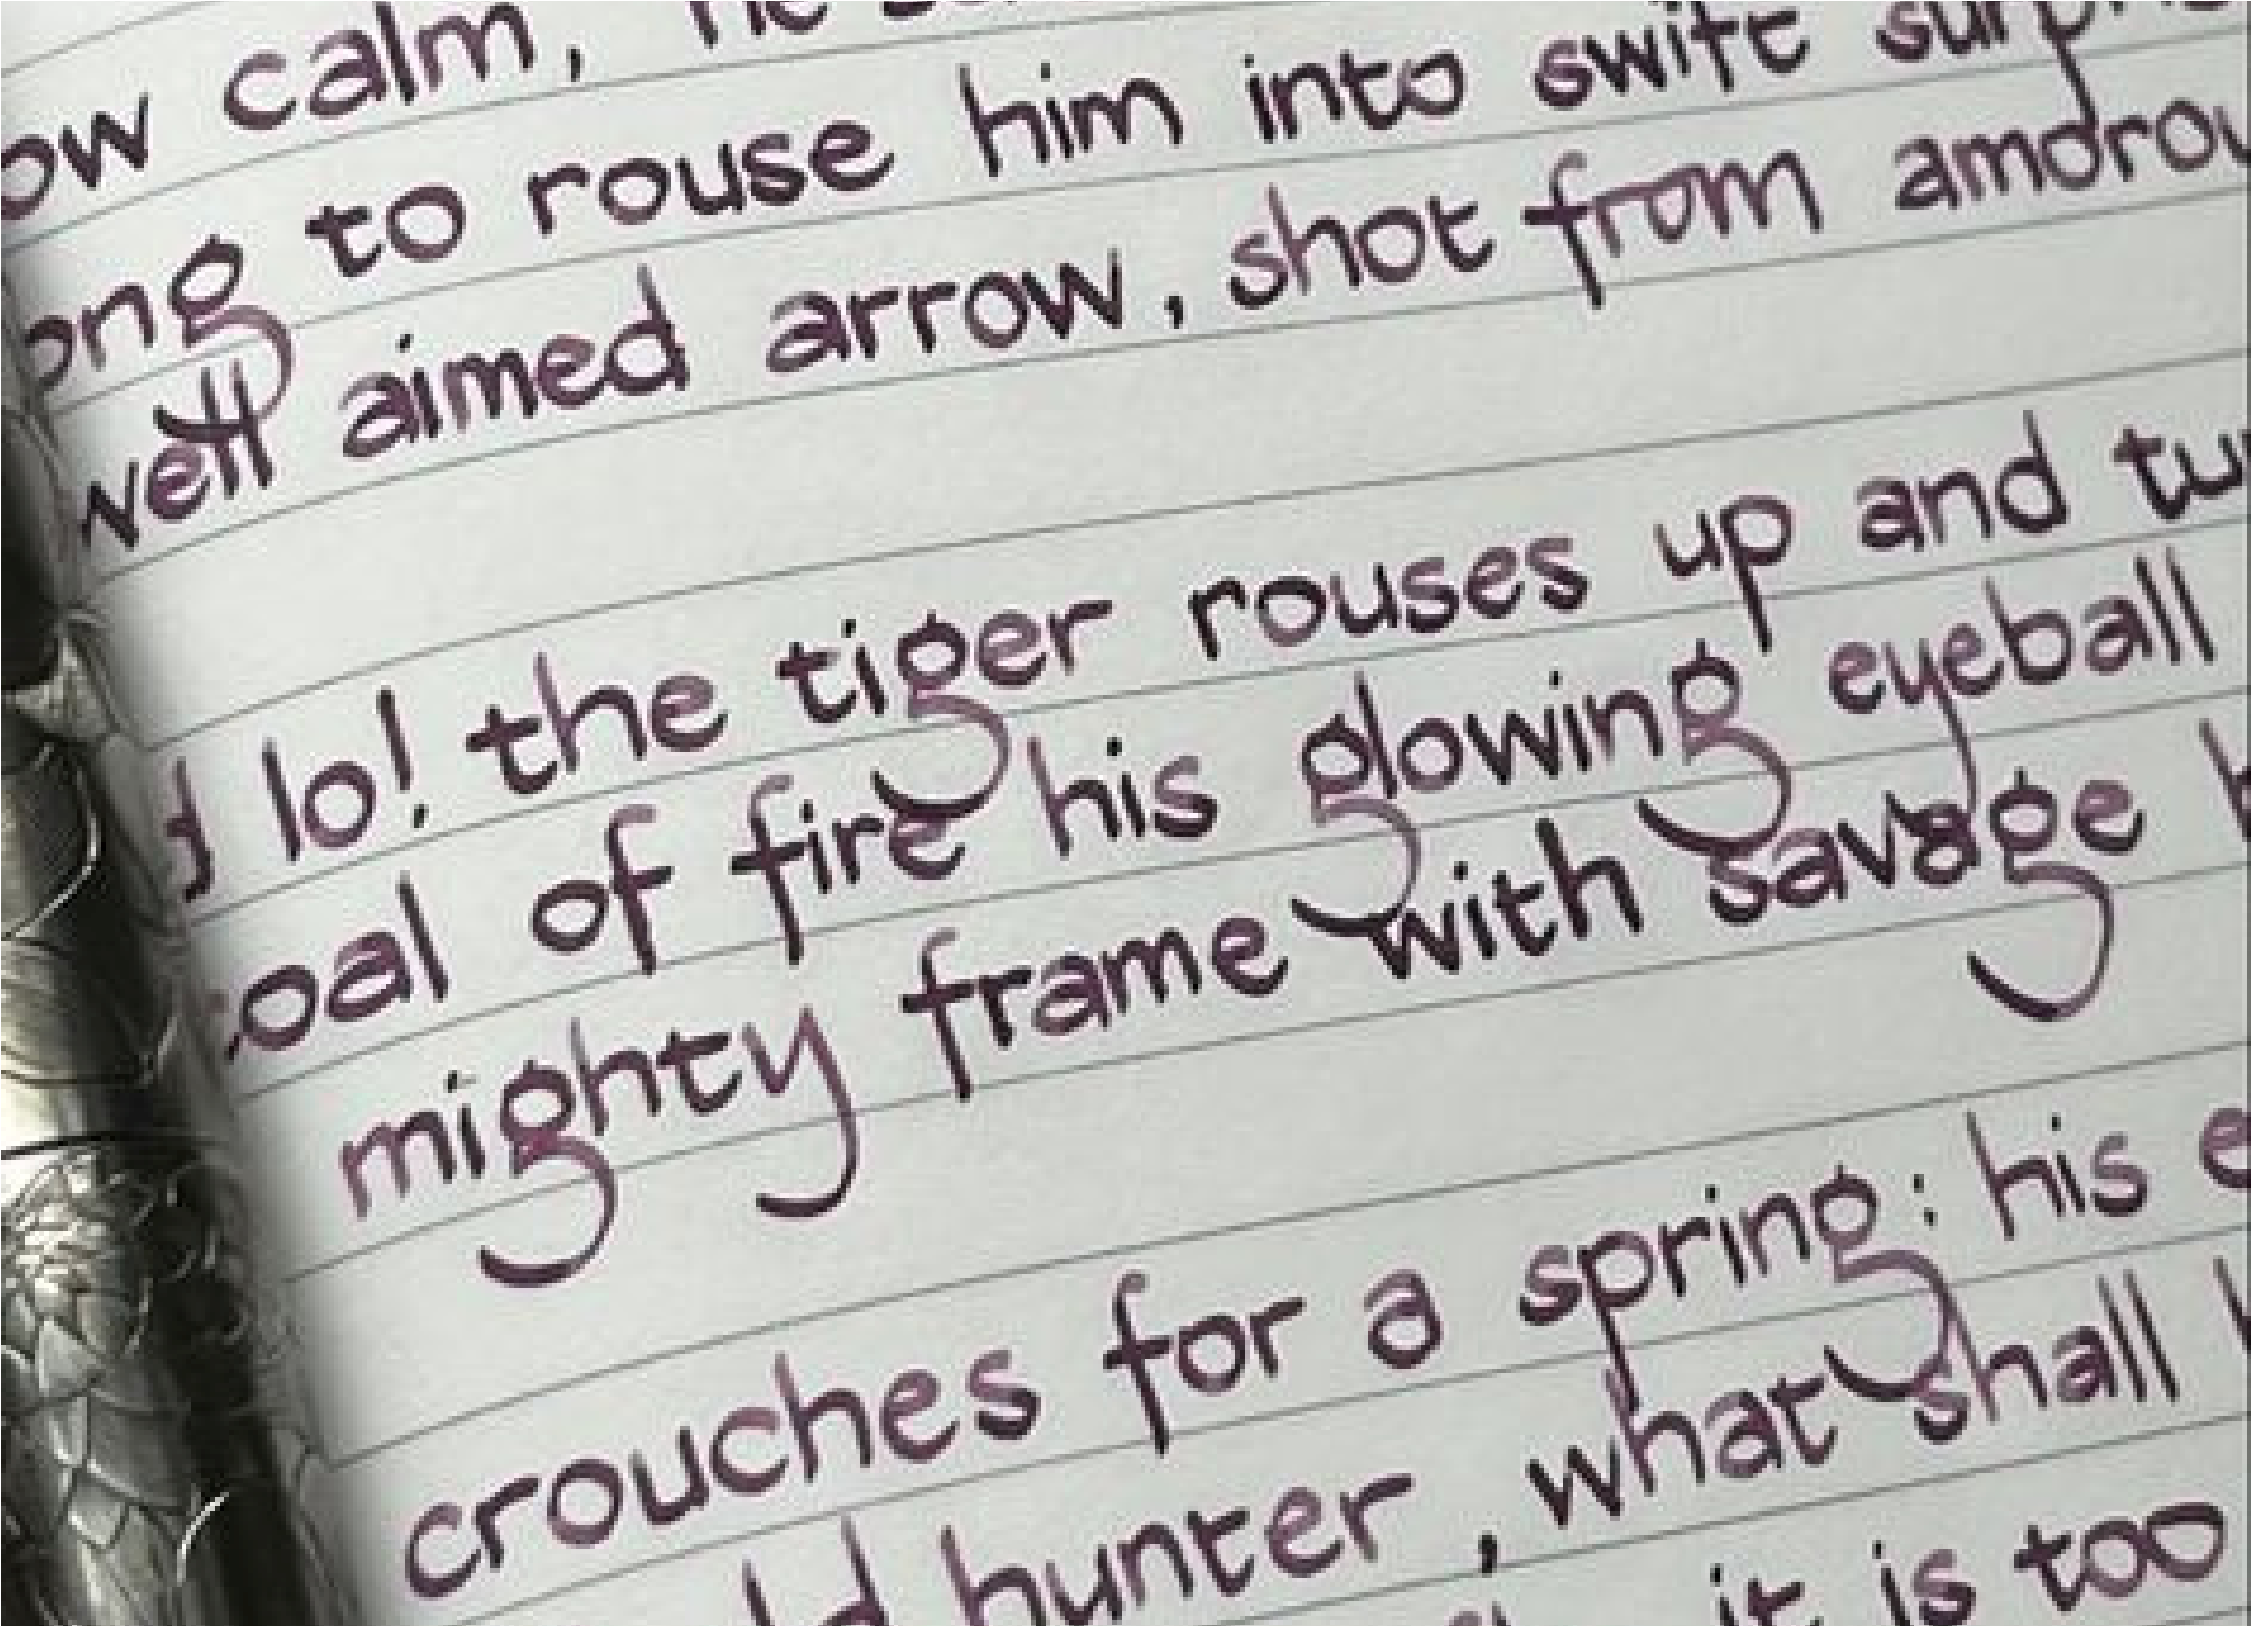 ow calm, he
ong to rouse him into swift surpri
well aimed arrow, shot from amdrou
lo! the tiger rouses up and tur
oal of fire his glowing eyeball
mighty frame with savage
crouches for a spring: his e
hunter, what shall
it is too